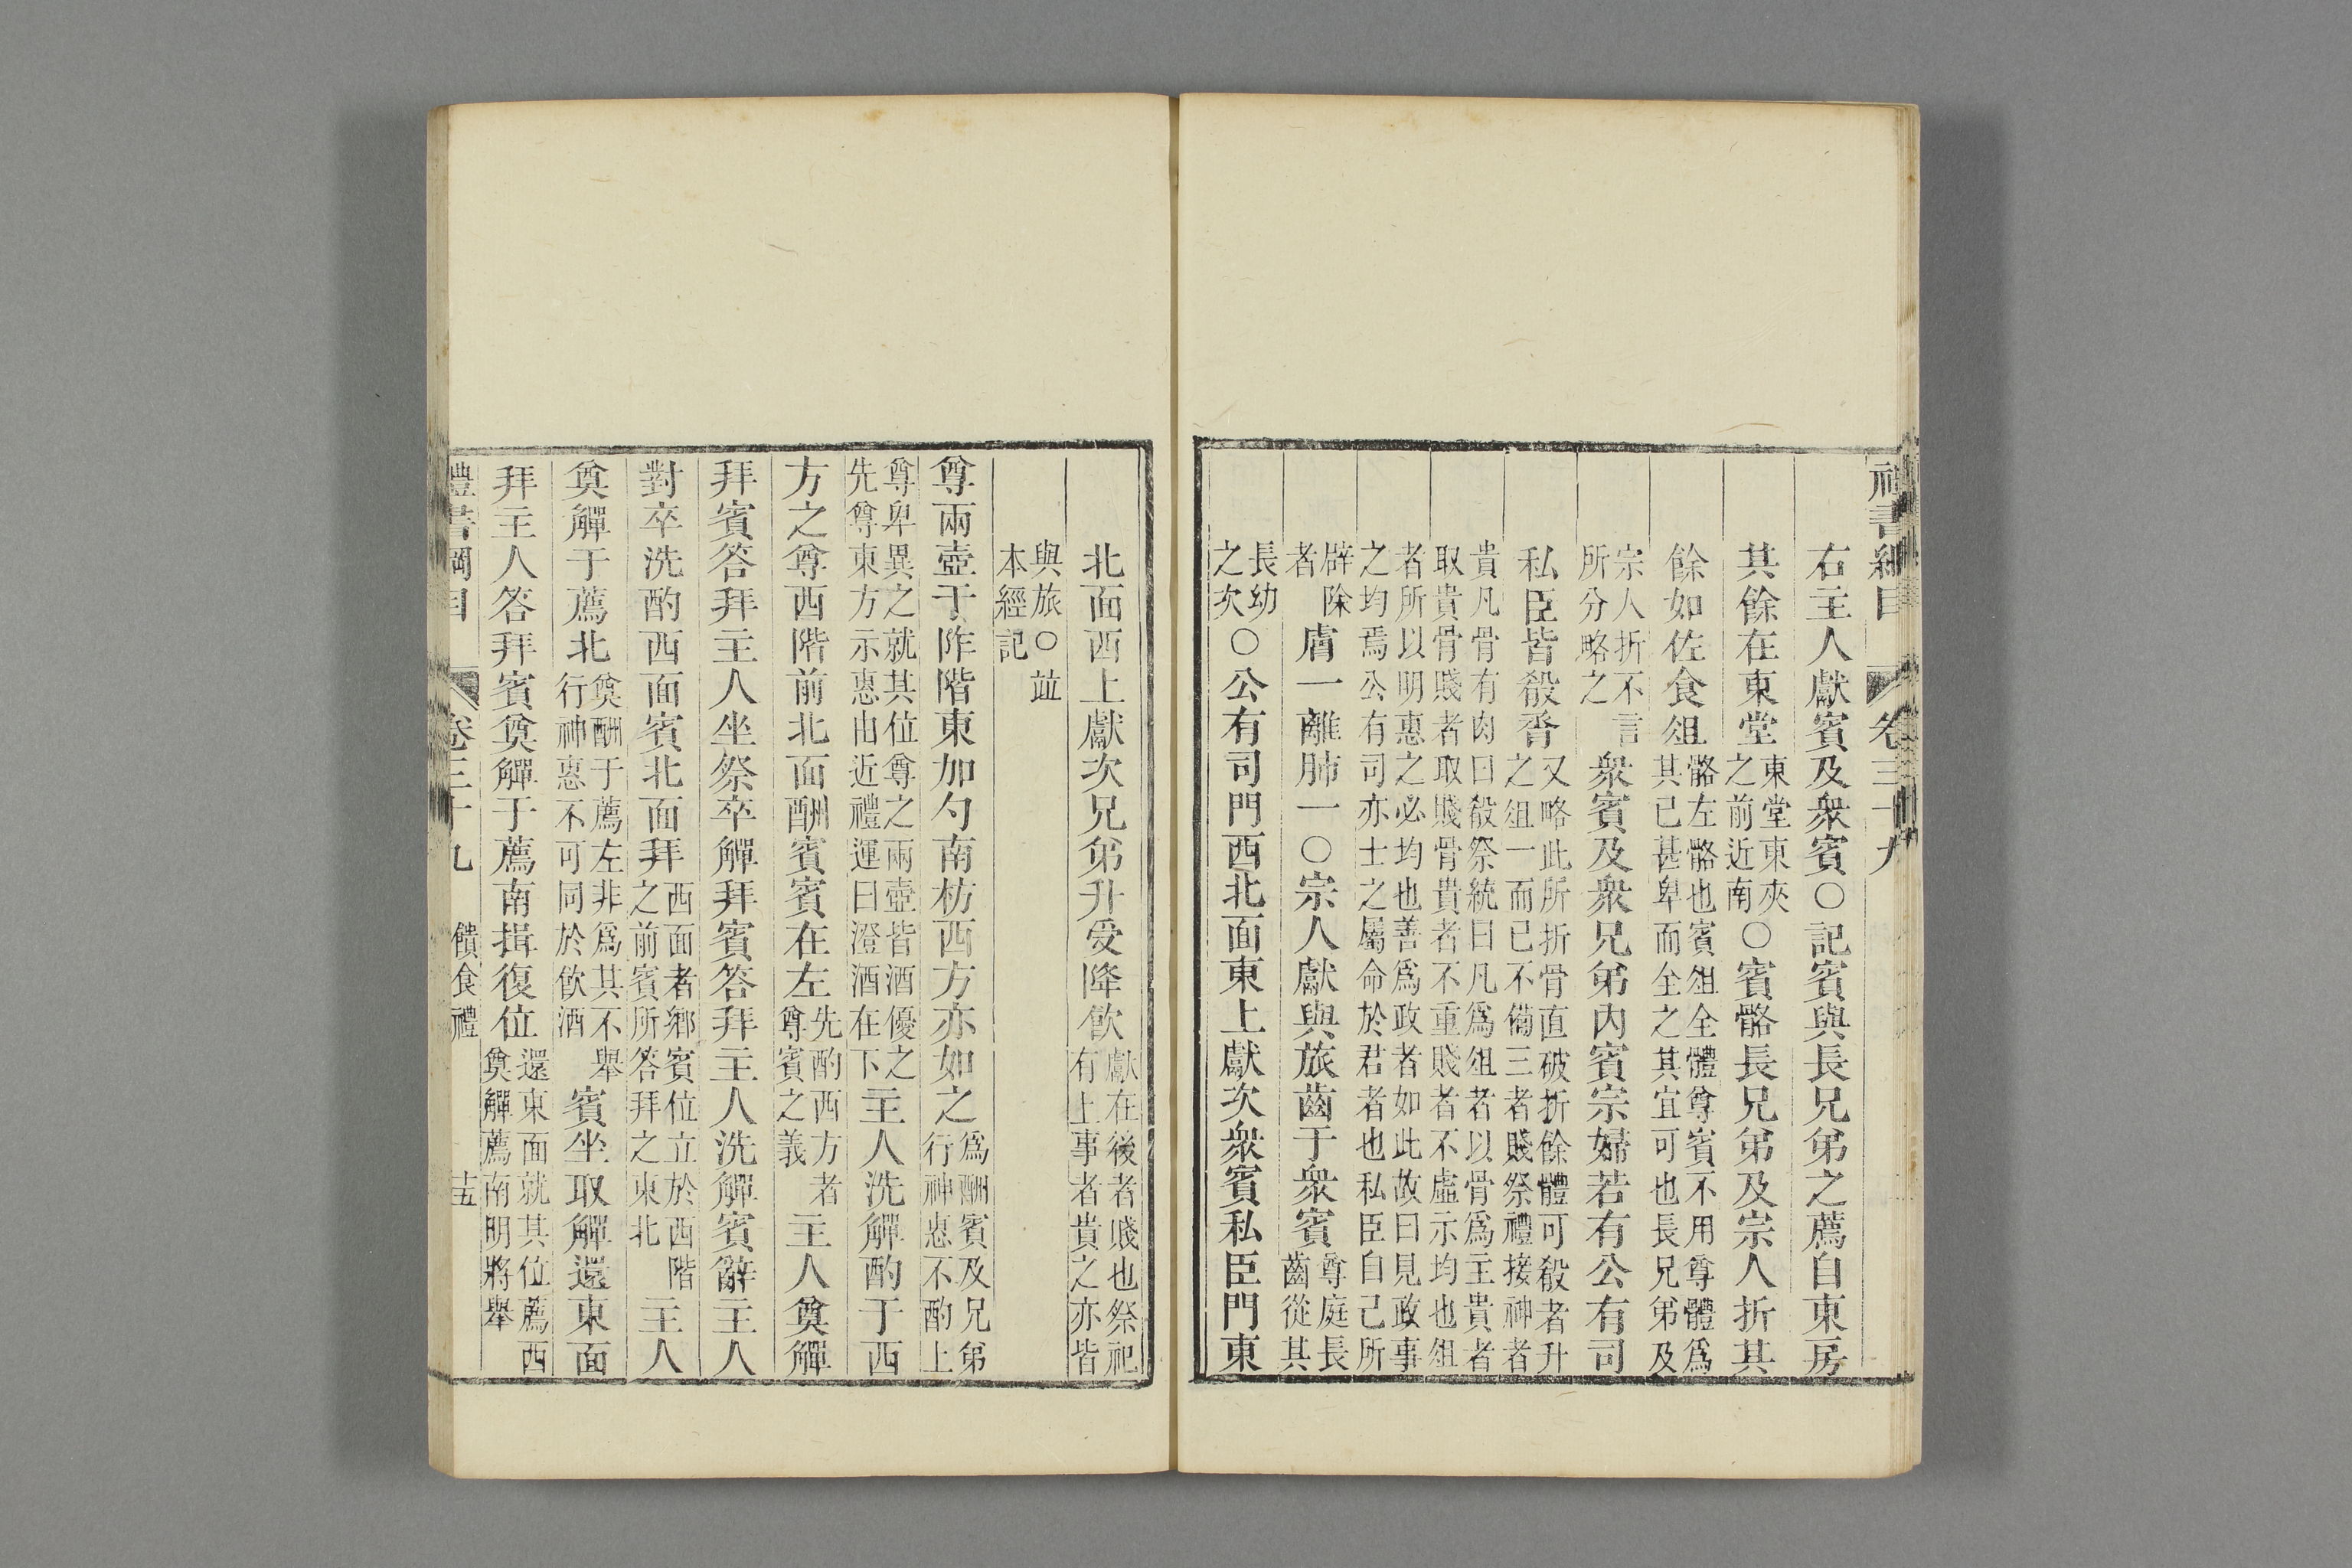 禮書綱目 卷三十九
右主人獻賓及衆賓○記賓與長兄弟之薦自東房
其餘在東堂東堂東夾之前近南○賓骼長兄弟及宗人折其
餘如佐食俎骼左骼也賓俎全體尊賓不用尊體爲其已甚卑而全之其宜可也長兄弟及
宗人折不言所分略之衆賓及衆兄弟內賓宗婦若有公有司
私臣皆殽脀又略此所折骨直破折餘體可殽者升之俎一而已不備三者賤祭禮接神者
貴凡骨有肉曰殽祭統曰凡爲俎者以骨爲主貴者取貴骨賤者取賤骨貴者不重賤者不虛示均也俎
者所以明惠之必均也善爲政者如此故曰見政事之均焉公有司亦士之屬命於君者也私臣自己所
辟除者膚一離肺一○宗人獻與旅齒于衆賓尊庭長齒從其
長幼之次○公有司門西北面東上獻次衆賓私臣門東
北面西上獻次兄弟升受降飮獻在後者賤也祭祀有上事者貴之亦皆
與旅○竝本經記
尊兩壺于阼階東加勺南枋西方亦如之爲酬賓及兄弟行神惠不酌上
尊卑異之就其位尊之兩壺皆酒優之先尊東方示惠由近禮運曰澄酒在下主人洗觶酌于西
方之尊西階前北面酬賓賓在左先酌西方者尊賓之義主人奠觶
拜賓答拜主人坐祭卒觶拜賓答拜主人洗觶賓辭主人
對卒洗酌西面賓北面拜西面者鄕賓位立於西階之前賓所答拜之東北主人
奠觶于薦北奠酬于薦左非爲其不舉行神惠不可同於飮酒賓坐取觶還東面
拜主人答拜賓奠觶于薦南揖復位還東面就其位薦西奠觶薦南明將舉
禮書綱目 卷三十九 饋食禮 十五